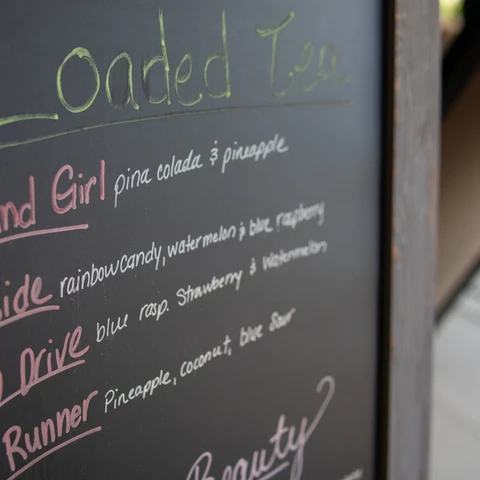 oaded Tea
nd Girl pina colada & pineapple
ide rainbow candy, watermelon & blue raspberry
Drive blue rasp. Strawberry & Watermelon
Runner Pineapple, coconut, blue Sour
Beauty